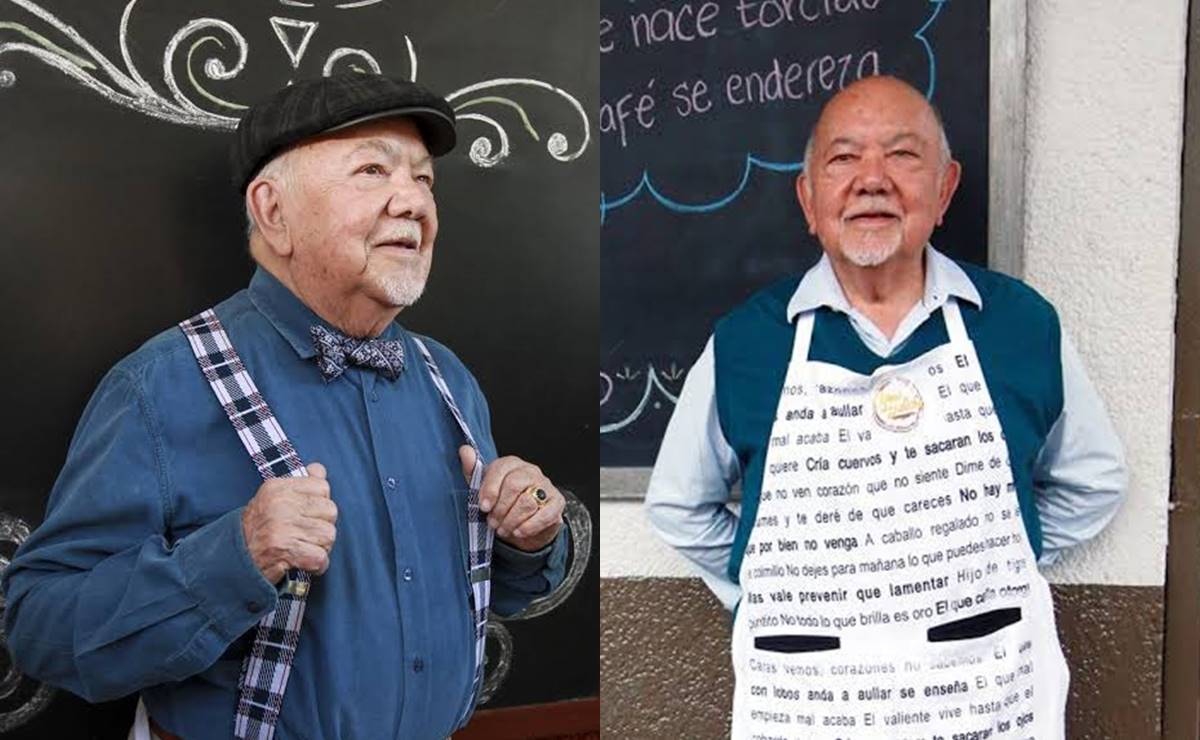 e nace torcido
afé se endereza
os El
El que
anda a aullar
asta que
mal acaba El va
quiere Cría cuervos y te sacaran los
que no ven corazón que no siente Dime de
umes y te deré de que careces No hay m
que por bien no venga A caballo regalado no se
colmillo No dejes para mañana lo que puedes hacer ho
Mas vale prevenir que lamentar Hijo de tigre
pintito No todo lo que brilla es oro El que
Caras vemos, corazones no sabemos El que
con lobos anda a aullar se enseña El que mal
empieza mal acaba El valiente vive hasta que el
te sacaran los ojos